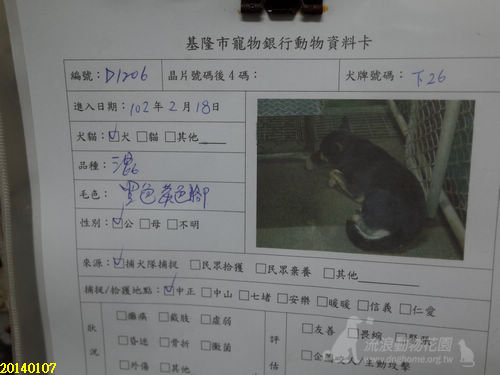 基隆市寵物銀行動物資料卡
編號：D1206 晶片號碼後4碼： 犬牌號碼：下26
進入日期：102年2月18日
犬貓：☑犬 □貓 □其他
品種：混
毛色：黑色黃色腳
性別：☑公 □母 □不明
來源：☑捕犬隊捕捉 □民眾拾獲 □民眾棄養 □其他
捕捉/拾獲地點：☑中正 □中山 □七堵 □安樂 □暖暖 □信義 □仁愛
狀況 □癱瘓 □截肢 □虛弱 評估 □友善 □畏縮 □緊張
□昏迷 □骨折 □黴菌 □會咬人/主動攻擊
□外傷 □其他
流浪動物花園
www.doghome.org.tw
20140107